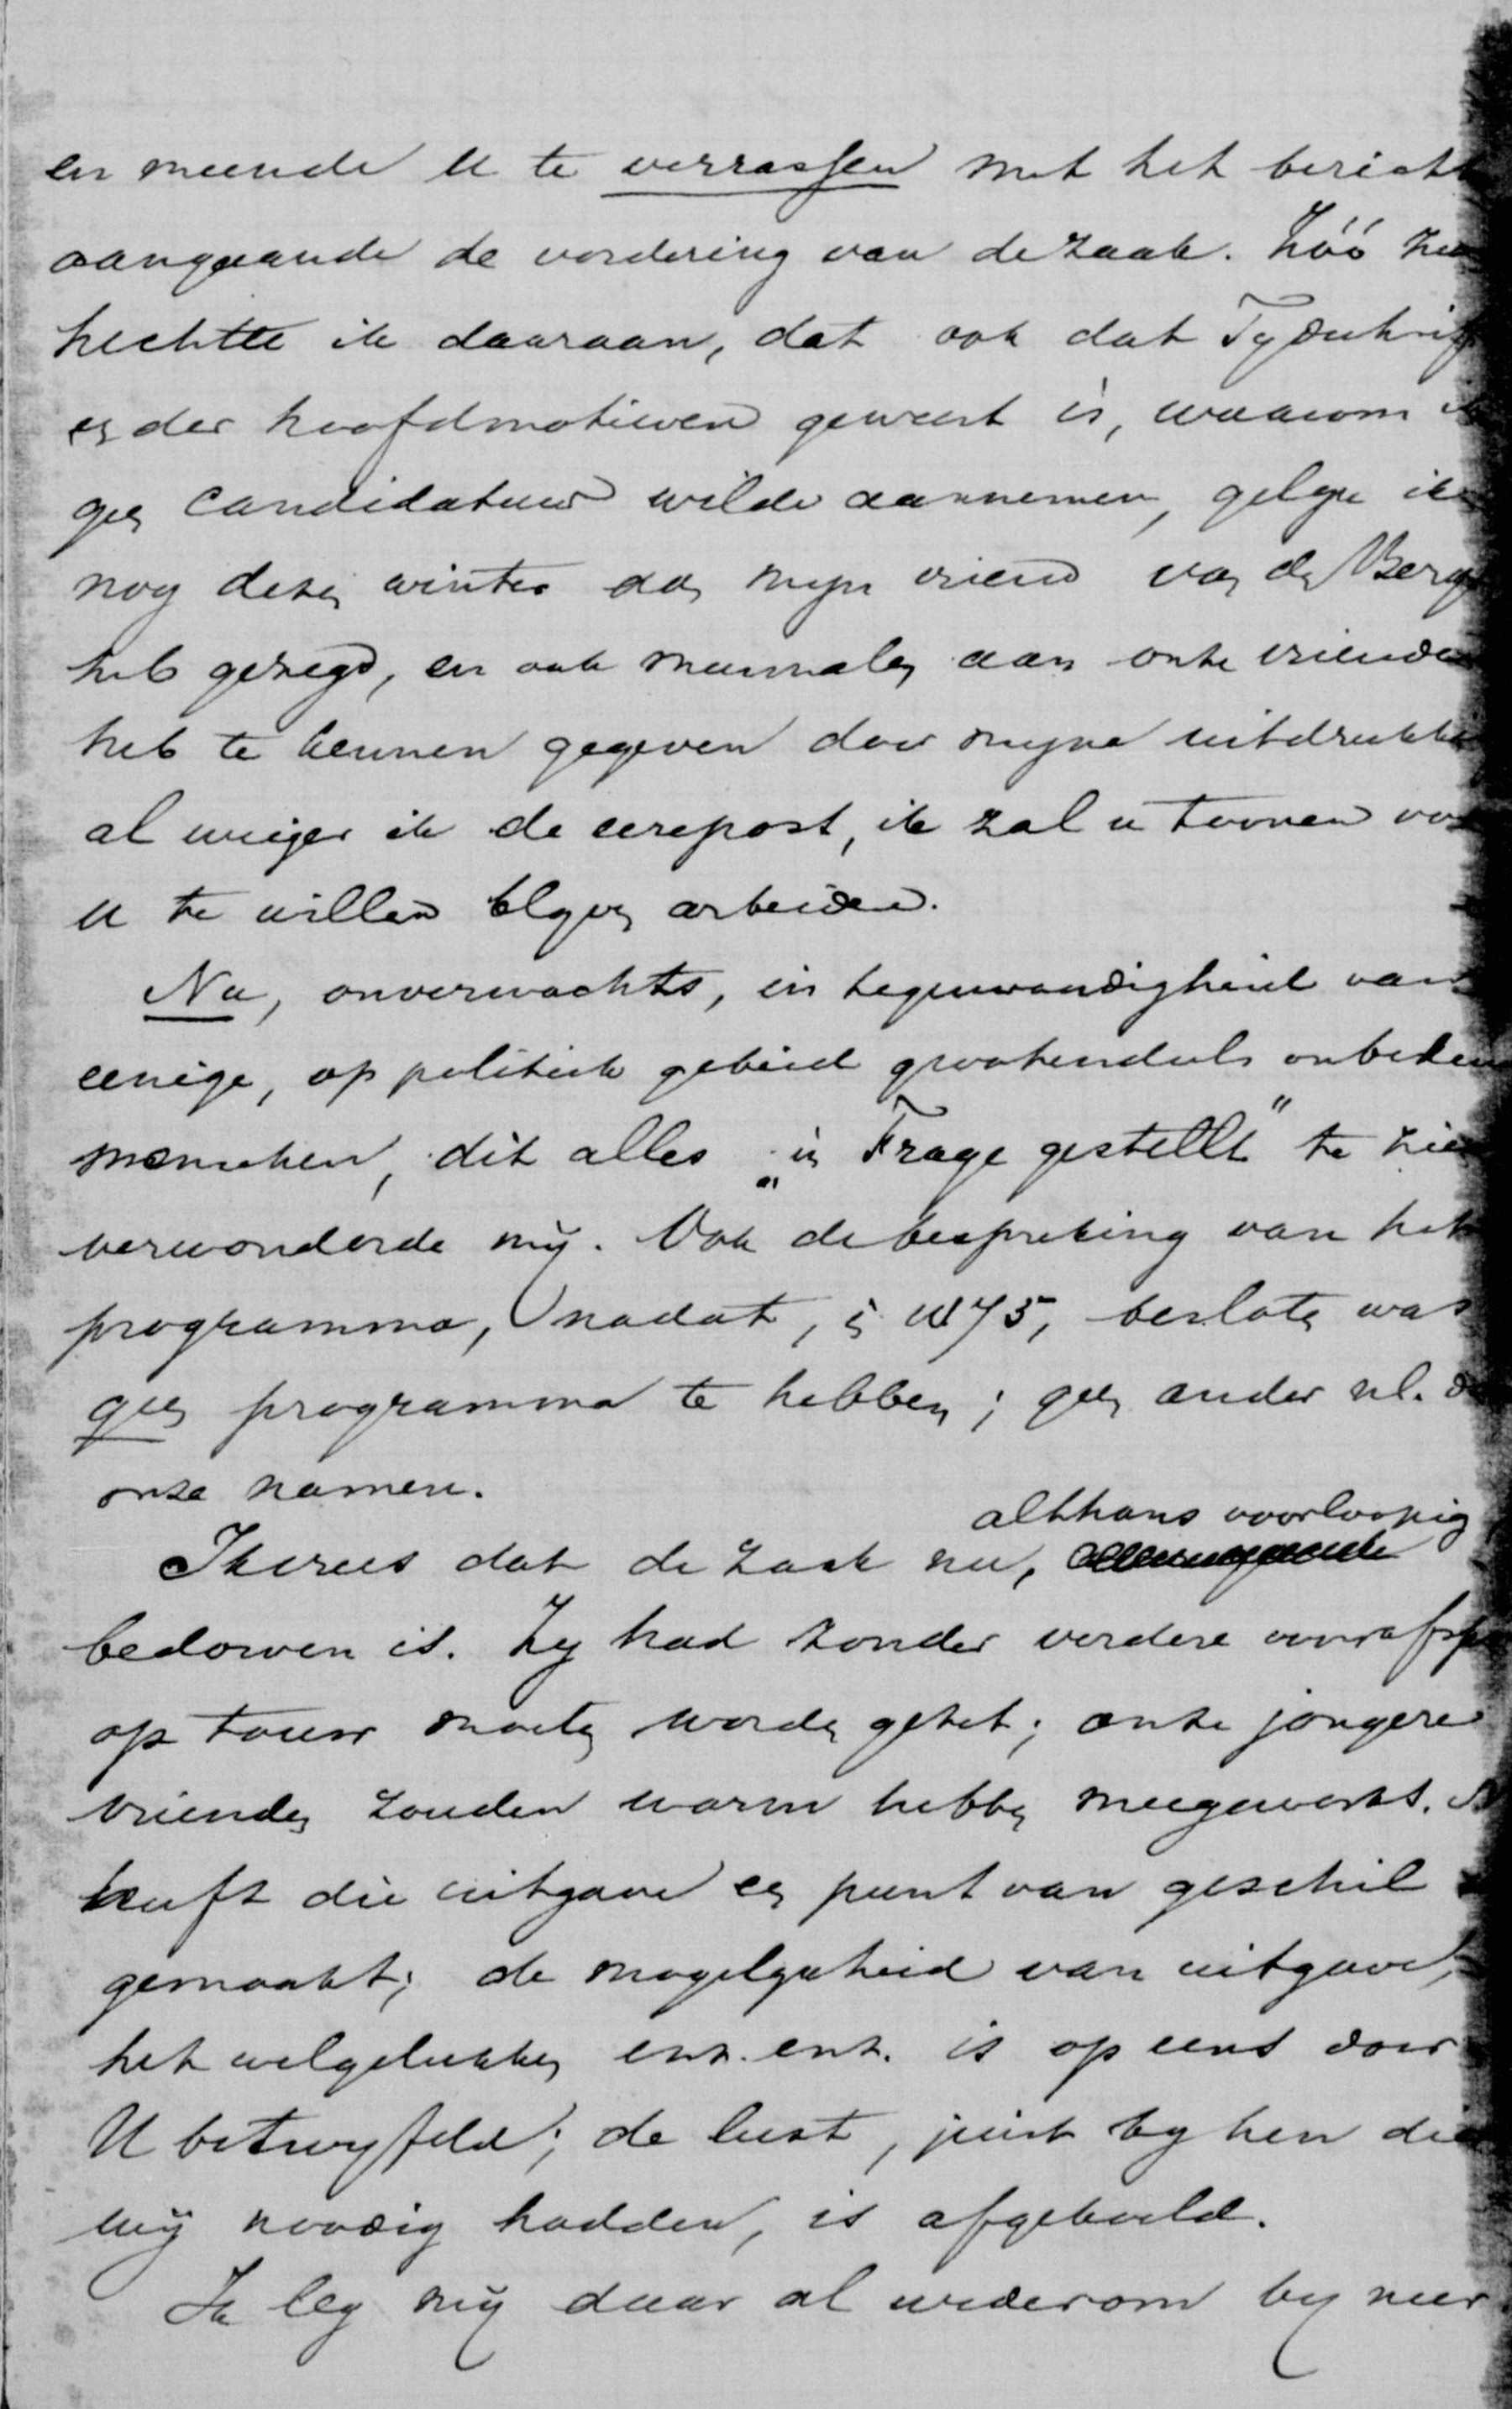 en meende U te verrassen met het bericht
aangaande de vordering van de zaak. Zóó zeer
hechtte ik daaraan, dat ook dat Tydschrift
een der hoofdmotieven geweest is, waarom ik
geen candidatuur wilde aannemen, gelyk ik
nog dezen winter aan myn vriend van den Bergh
heb gezegd, en ook meermalen aan onze vrienden
heb te kennen gegeven door myne uitdrukking
al weiger ik de eerepost, ik zal u toonen voor
U te willen blyven arbeiden.
Nu, onverwachts, in tegenwoordigheid van
eenige, op politiek gebied grootendeels onbekende
menschen, dit alles „in Frage gestellt" te zien
verwonderde mij. Ook de bespreking van het
programma, nadat, in 1875, besloten was
geen programma te hebben; geen ander nl. dan
onze namen.
althans voorloopig
Ik vrees dat de zaak nu,
bedorven is. Zy had zonder verdere
op touw moeten worden gezet; onze jongere
vrienden zouden warm hebben meegewerkt.
heeft die uitgave een punt van geschil
gemaakt; de mogelykheid van uitgave,
het welgelukken enz. enz. is op eens door
U betwyfeld; de lust, juist by hen die
wij noodig hadden, is afgekoeld.
Ik leg my daar al wederom by neer